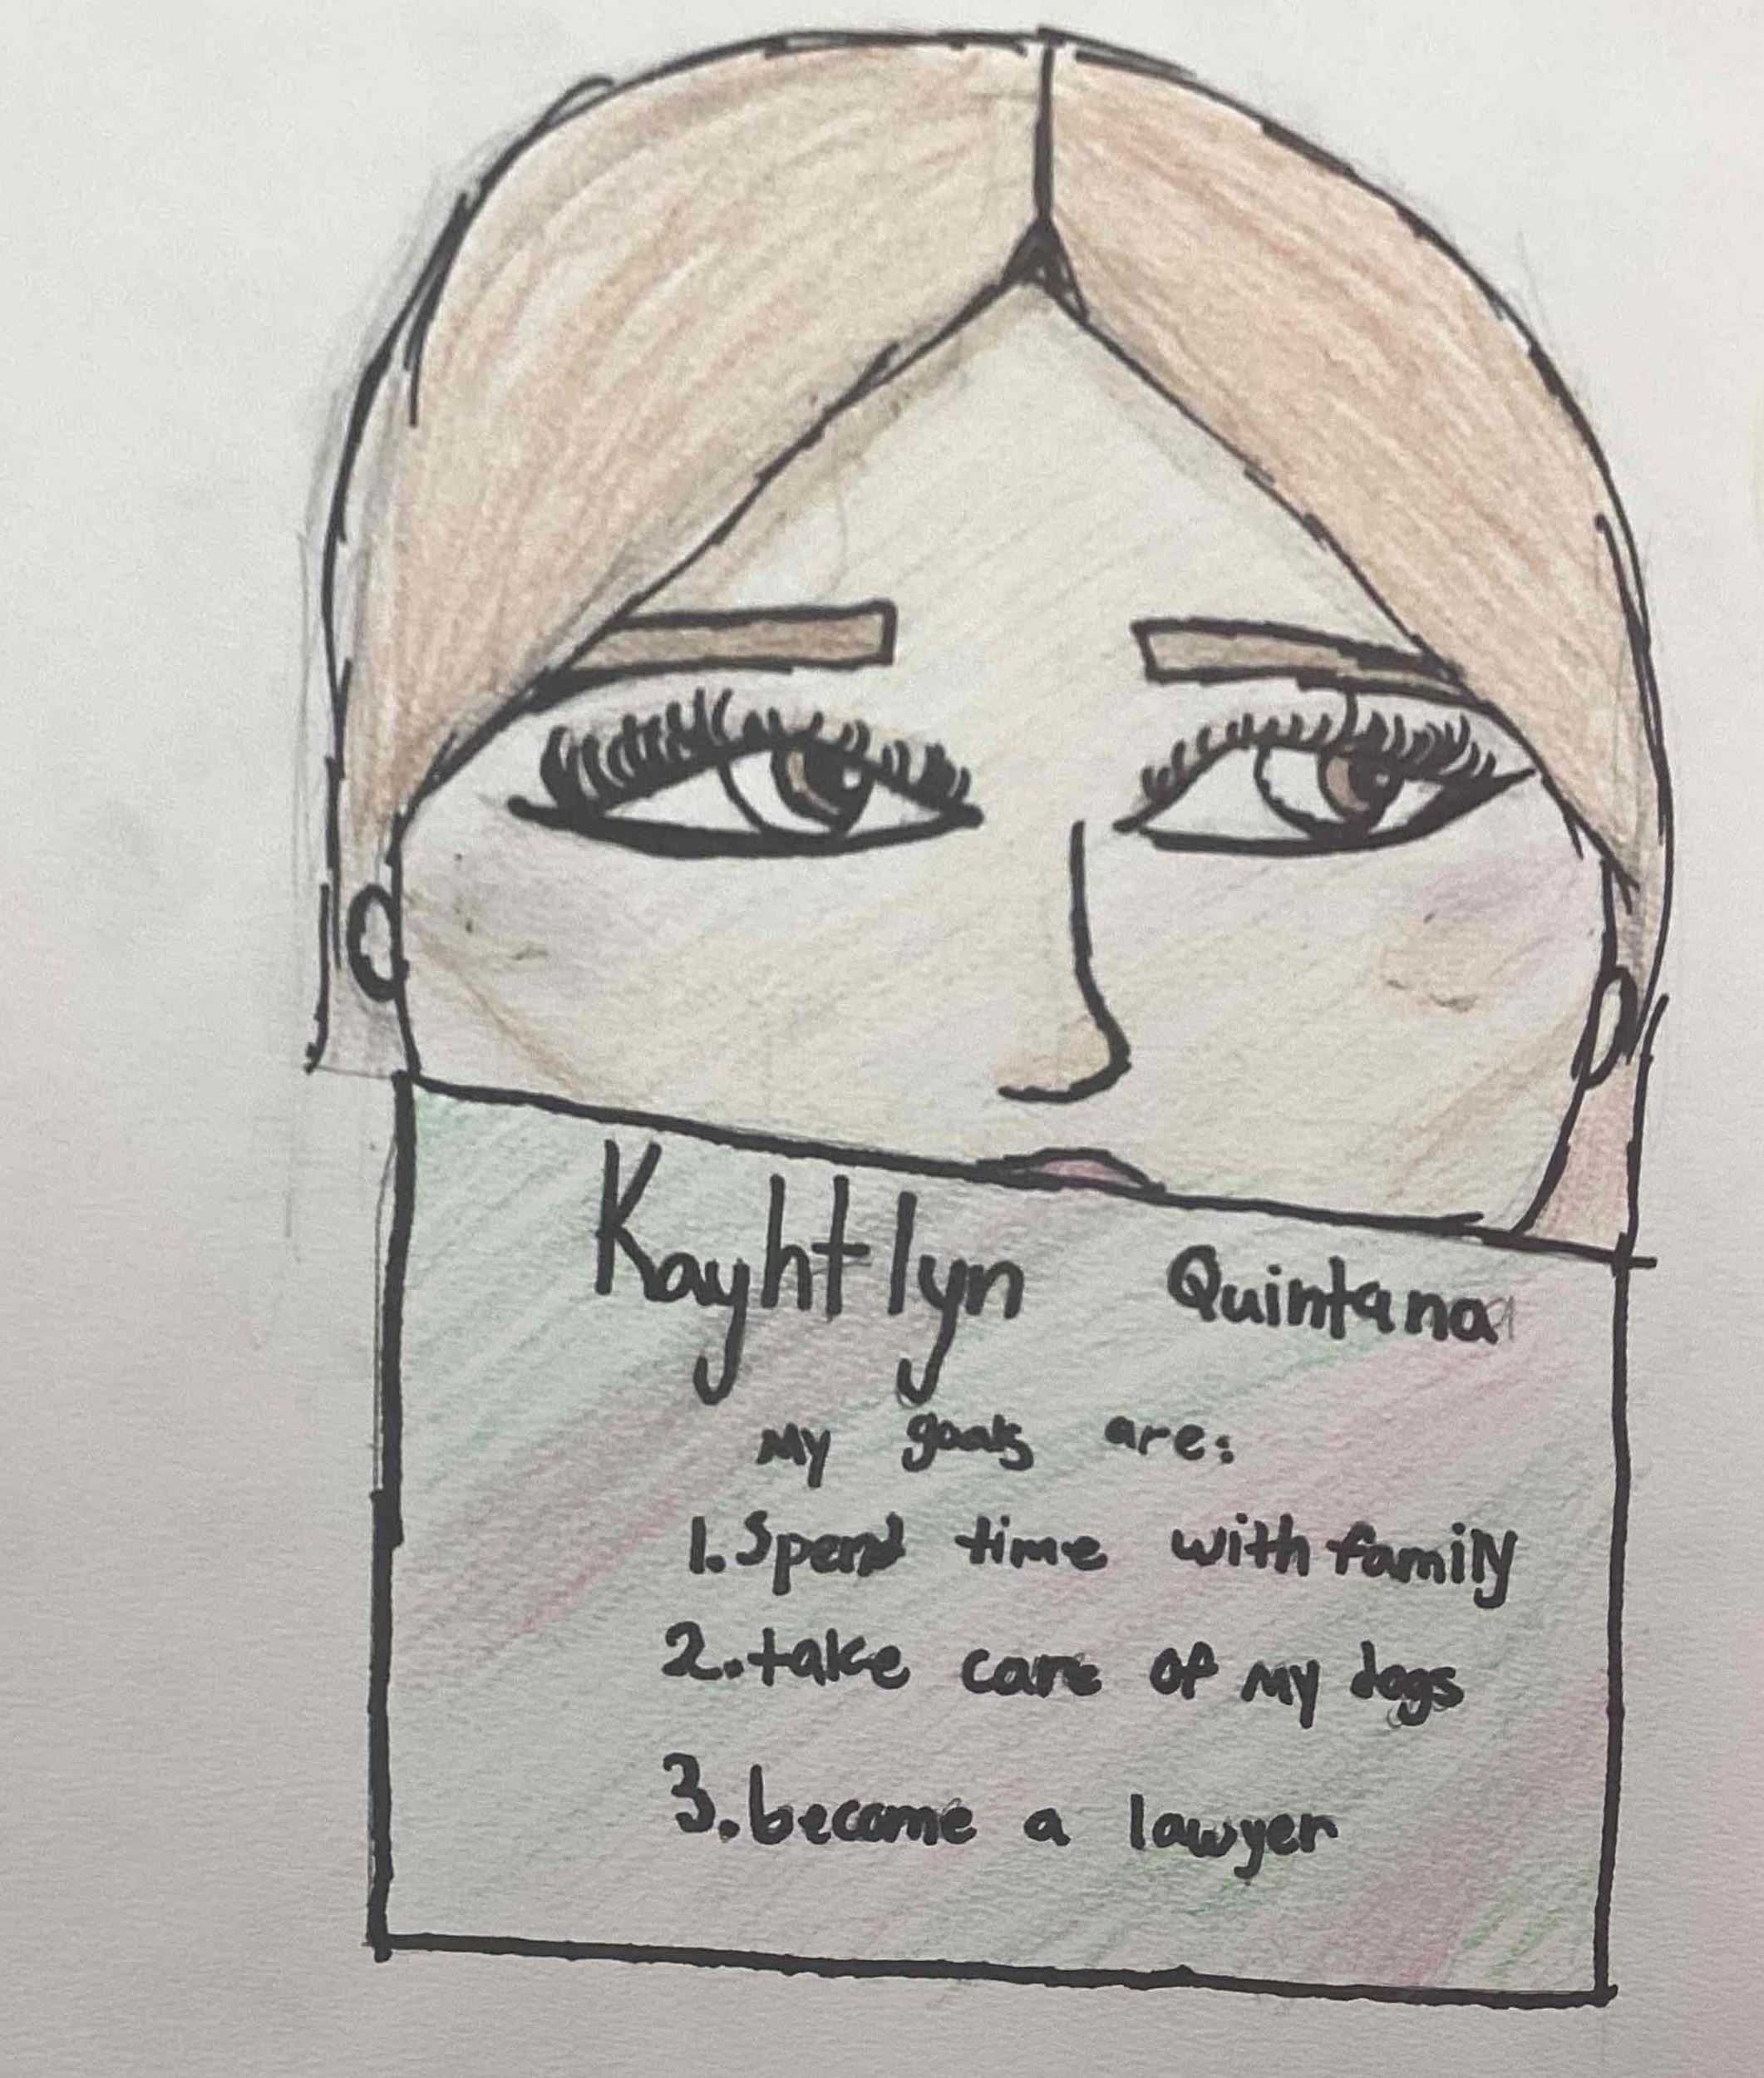 Kayhtlyn Quintana
My goals are:
1. Spend time with family
2. take care of my dogs
3. become a lawyer